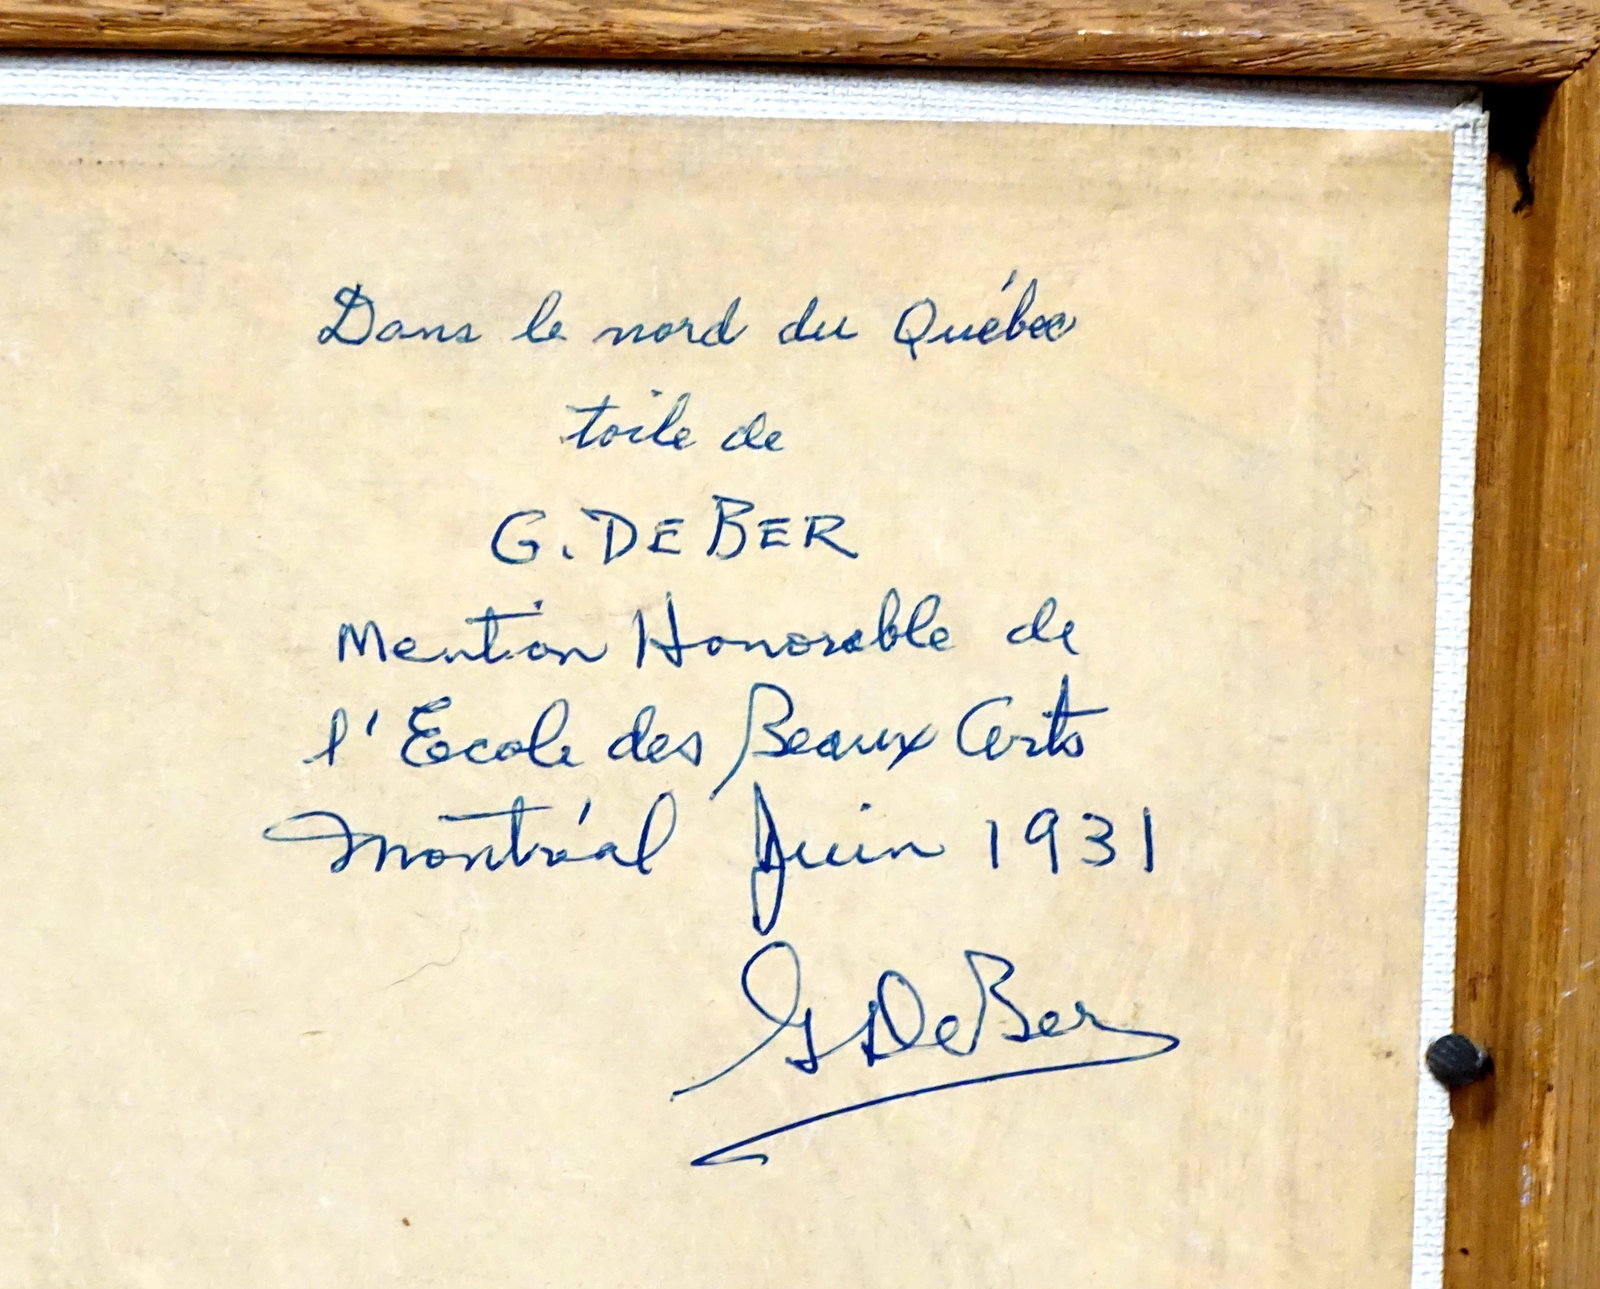 Dans le nord du Québec
toile de
G. DE BER
Mention Honorable de
l'Ecole des Beaux Arts
Montréal Juin 1931
G DeBer